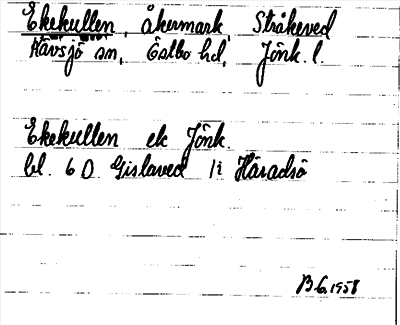 Ekekullen, åkermark, Stråkeved
Kävsjö sn, Östbo hd, Jönk. l.
Ekekullen ek Jönk.
bl. 6 D Gislaved 1i Häradsö
B.G. 1958